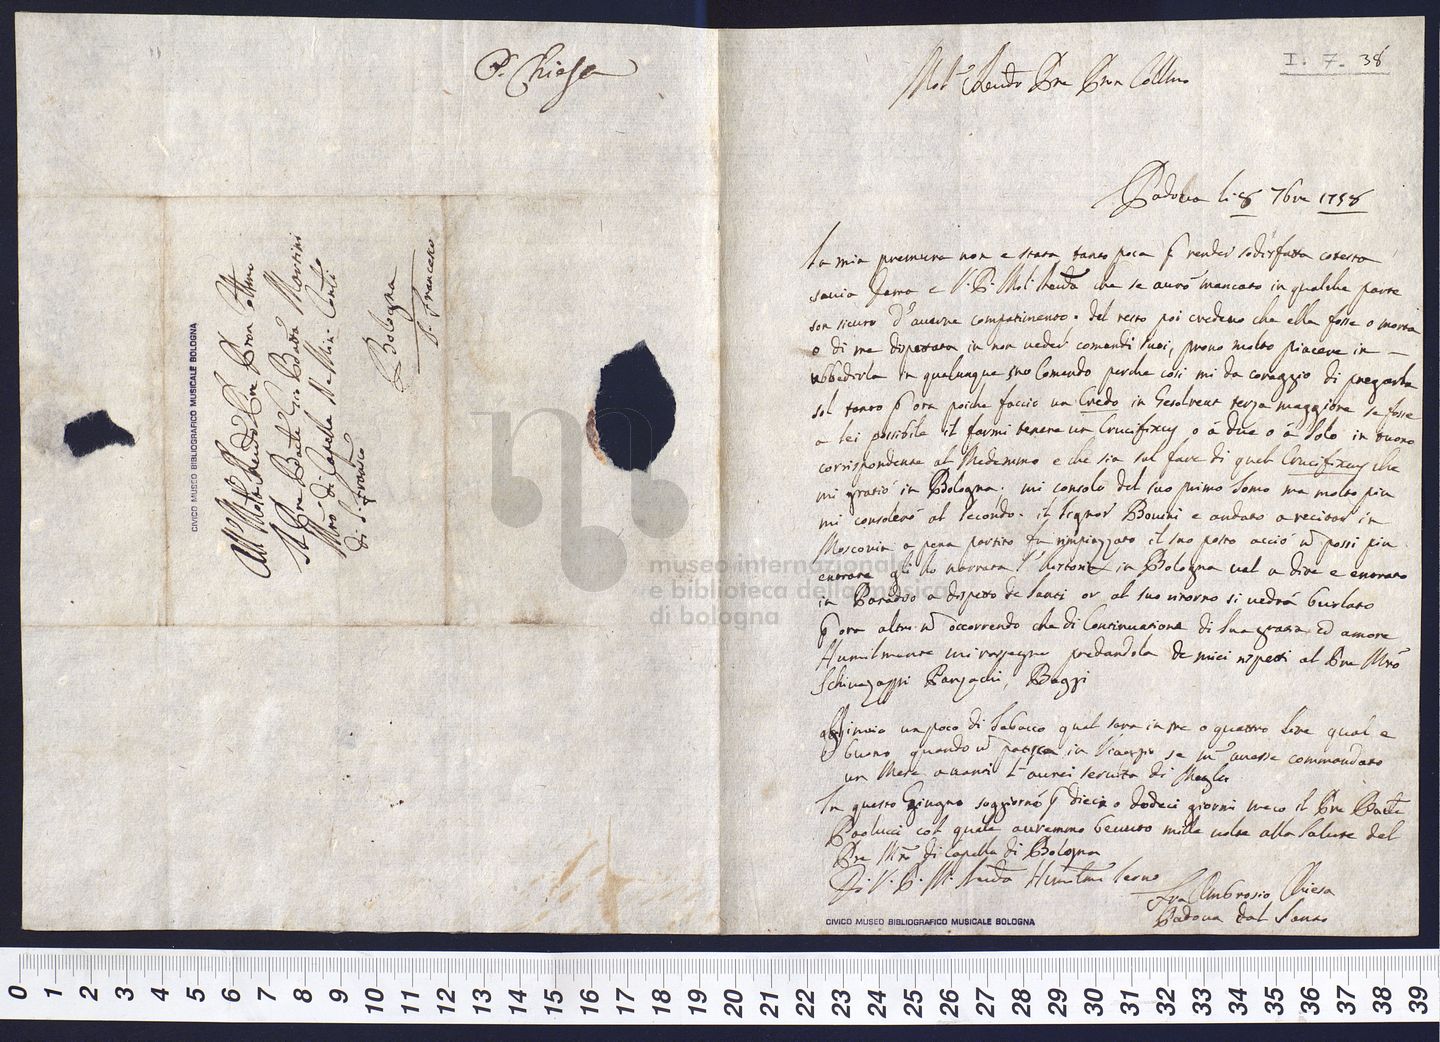 P. Chiesa
All Molto Rendo Pre Pron Ottmo
Il Pre Bacle Gio Batta Martini
Mro di Capella De Min: Contli
di S. Franco
Bologna
S. Francesco
CIVICO MUSEO BIBLIOGRAFICO MUSICALE BOLOGNA
I. 7. 38
Molto Rendo Pre Pron Collmo
Padova li 8 7bre 1758
La mia premura non e stata tanto poca p render sodisfatta cotesta
savia Dama e V. P. Mol: Renda che se aurò mancato in qualche parte
son sicuro d'auerne compatimento. del resto poi credevo che ella fosse o morta
o di me disgustata in non veder comandi suoi, provo molto piacere in
ubbedirla in qualunque suo Comando perche così mi da coraggio di pregarla
sol tanto p ora poiche faccio un Credo in Gesolreut terza maggiore se fosse
a lei possibile il farmi tenere un Crucifixus o à due o à solo in tuono
corrispondente al Medemmo e che sia sul fare di quel Crucifixus che
mi gratiò in Bologna. mi consolo del suo primo Tomo ma molto piu
mi consolerò al secondo. il Signor Bonini e andato a recitar in
Moscovia a pena partito fu rimpiazzato il suo posto acciò non possi piu
entrare gli ho narrata l'Istoria in Bologna val a dire e entrato
in Paradiso a dispetto de Santi or al suo ritorno si vedrà burlato
p ora altro non occorrendo che di Continuatione di Sua grazia ed amore
Humilmente mi rassegno pregandola de miei rispetti al Pre Mro
Schiavazzi Panzachi, Baggi
Gl'invio un poco di Tabacco qual sara in tre o quattro Lire qual e
buono quando non patisca in Viaggio se m'avesse commandato
un Mese avanti l'aurei servita di Meglio
In questo Giugno soggiornò p dieci o dodeci giorni meco il Pre Bacle
Paolucci col quale auremmo beuuto mille volte alla Salute del
Pre Mro di Capella di Bologna
Di V. P. M. Renda Humilmo Servo
Fra Ambrosio Chiesa
Padova dal Santo
CIVICO MUSEO BIBLIOGRAFICO MUSICALE BOLOGNA
museo internazionale
e biblioteca della musica
di bologna
0 1 2 3 4 5 6 7 8 9 10 11 12 13 14 15 16 17 18 19 20 21 22 23 24 25 26 27 28 29 30 31 32 33 34 35 36 37 38 39